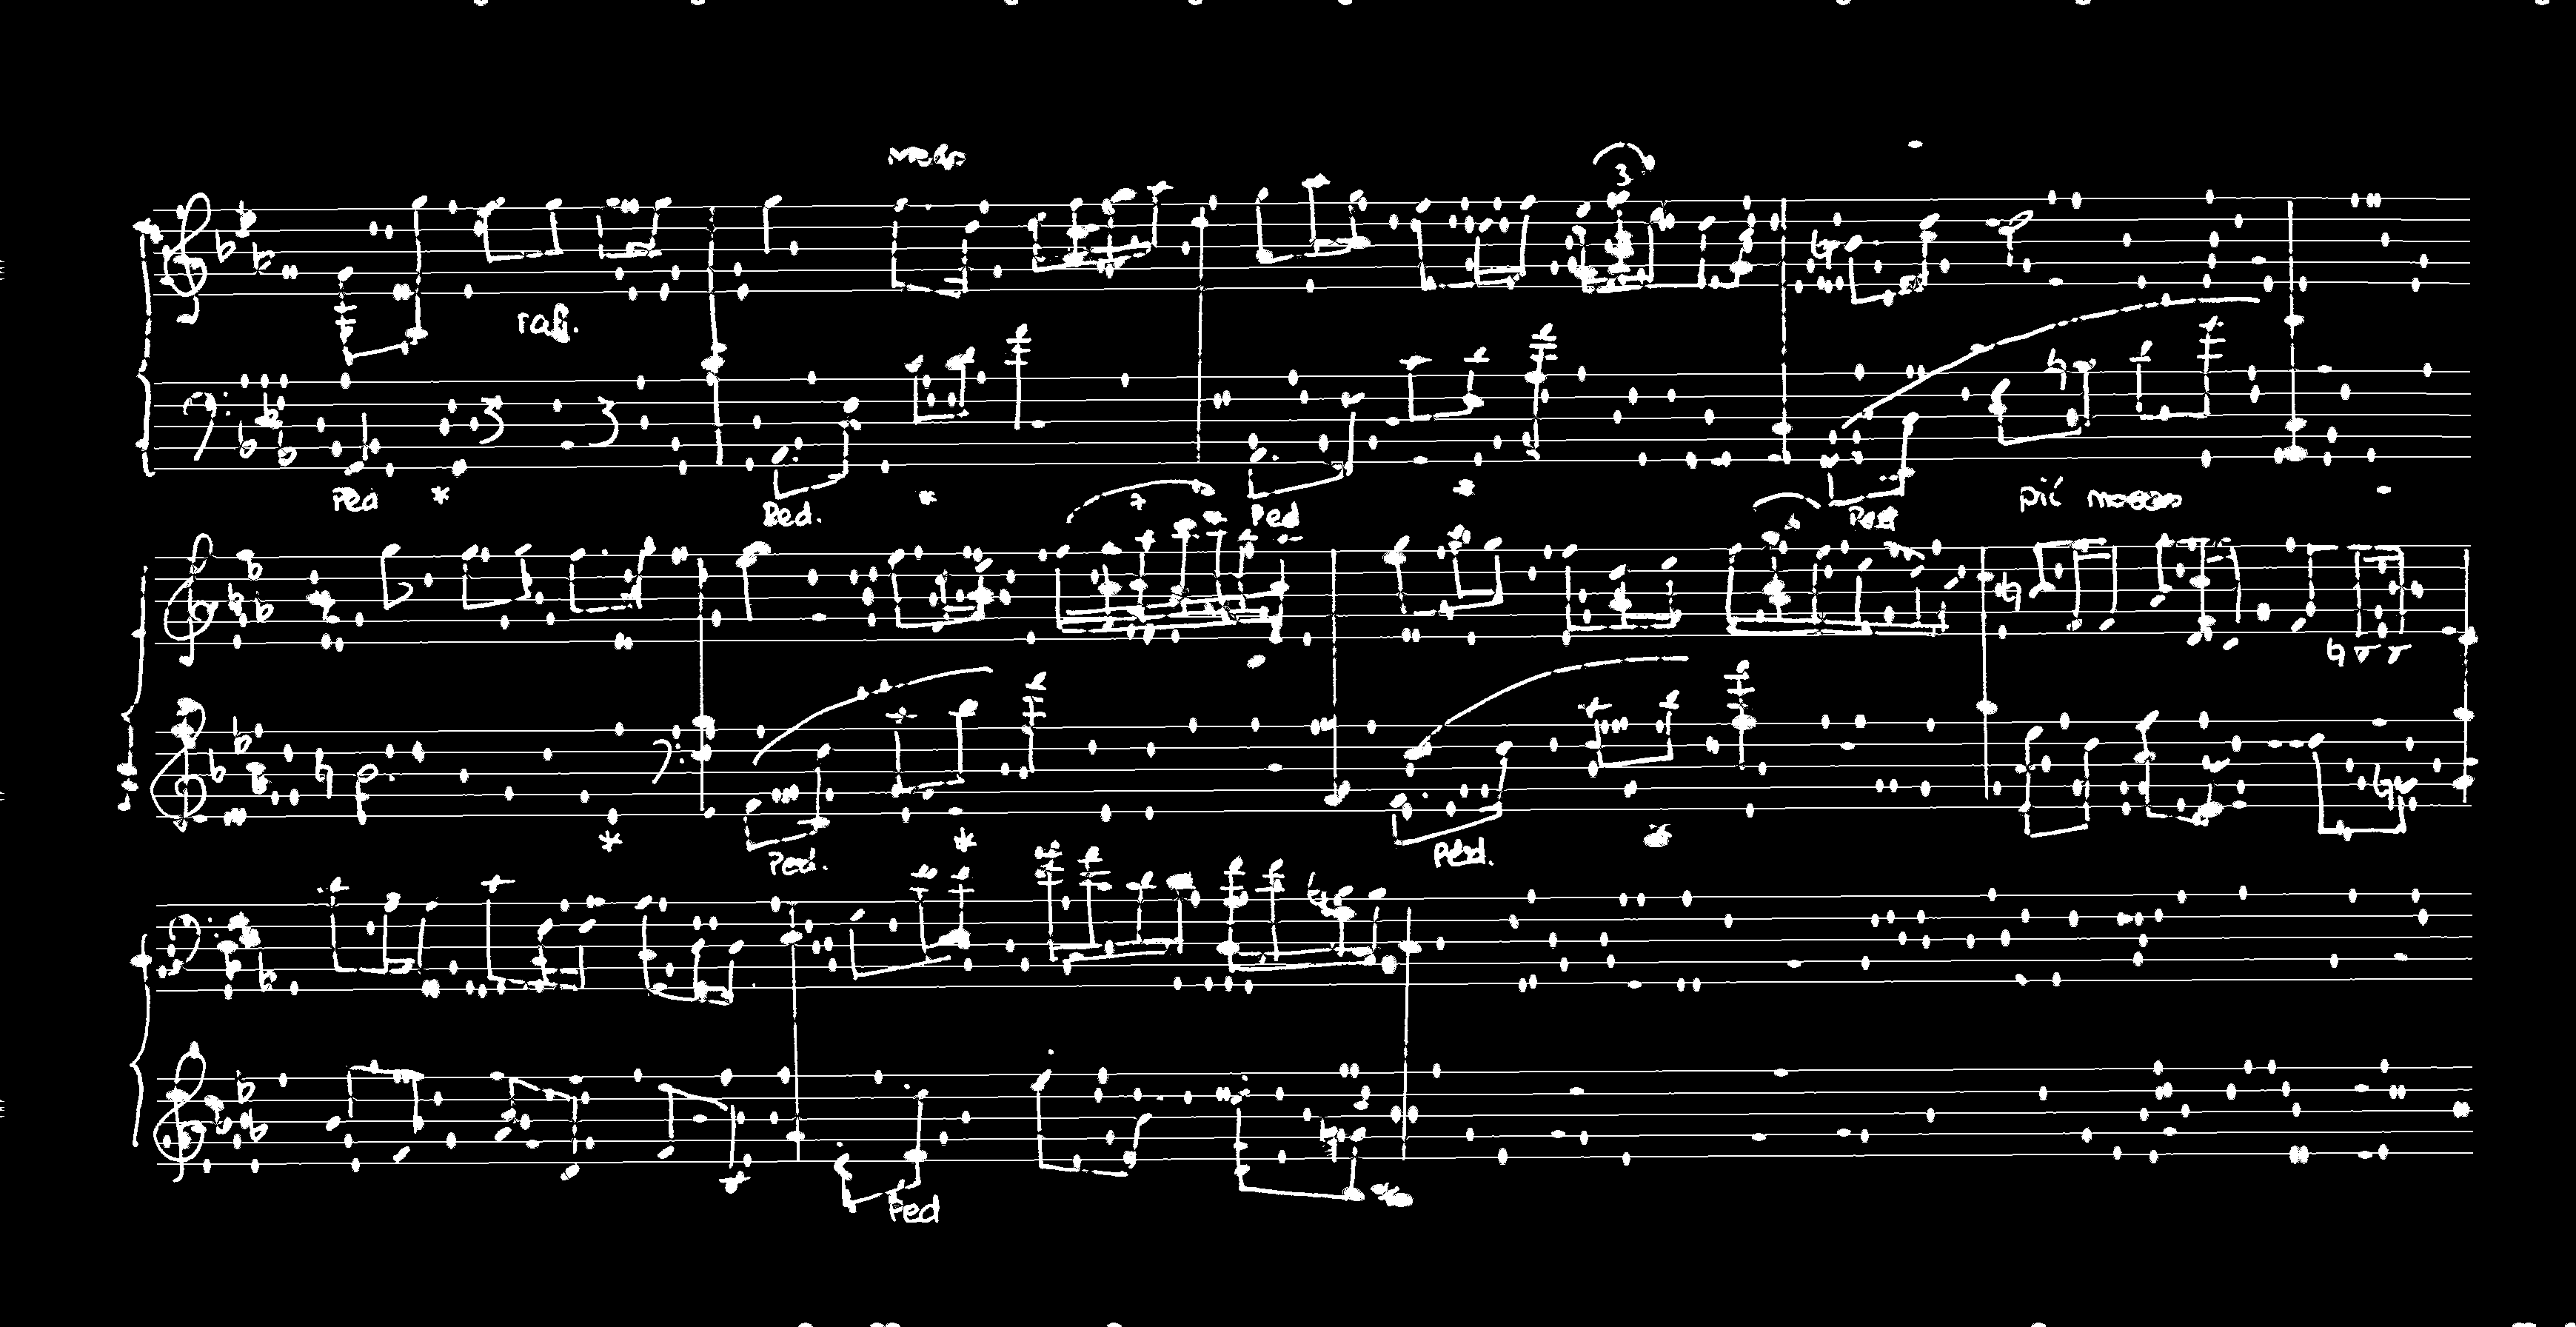 meno
3
rall.
Ped *
Ped. * Ped * Ped più mosso
7
* Ped. * Ped.
Ped